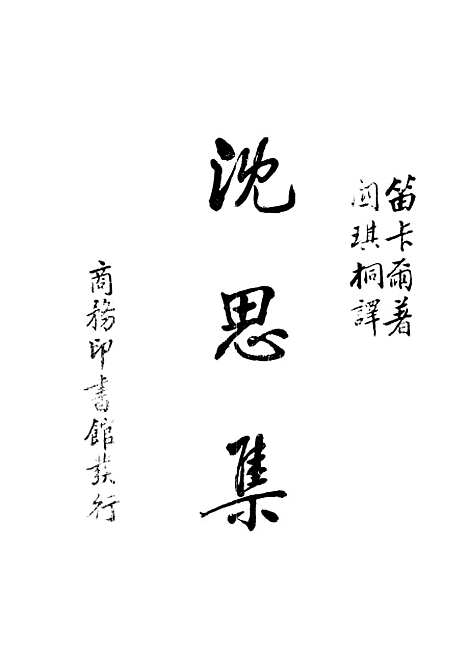 笛卡爾著
關琪桐譯
沈思集
商務印書館發行